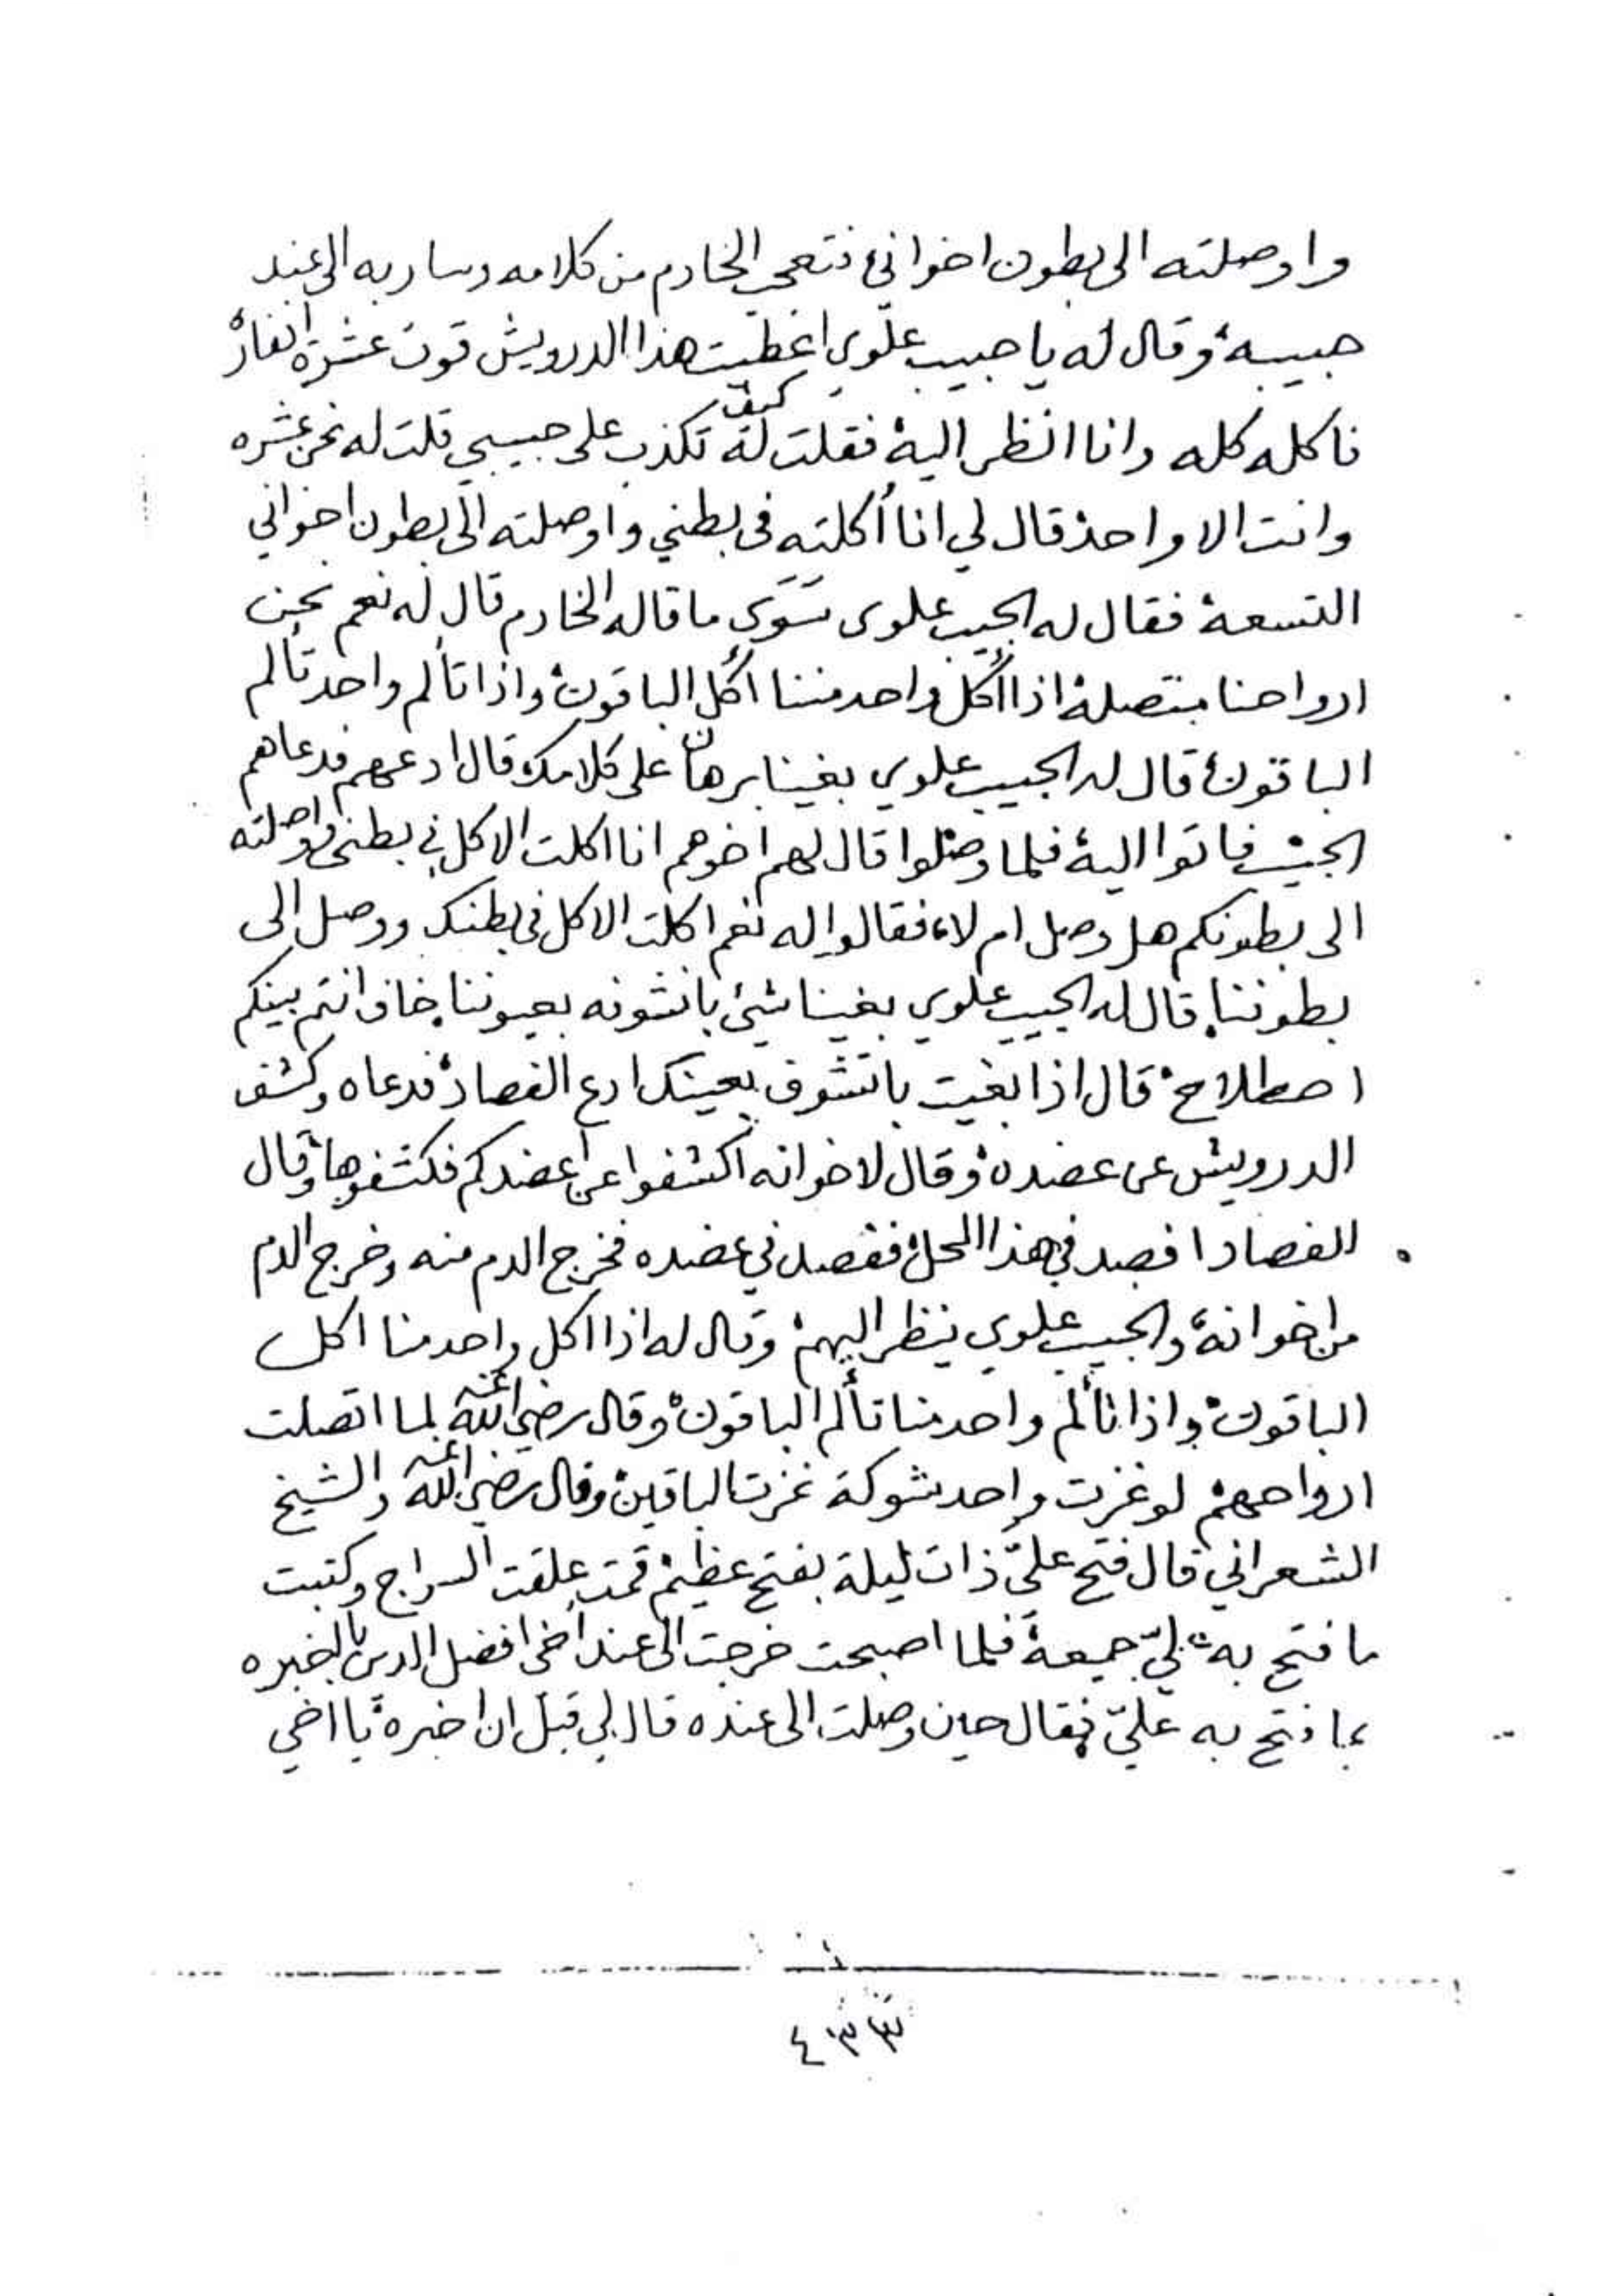 واوصلته الى بطون اخواني، فتعجب الخادم من كلامه وسار به الى عند
حبيبه، وقال له يا حبيب علوي اعطيت هذا الدرويش قوت عشرة انفار
فاكله كله وانا انظر اليه، فقلت له كيف تكذب على حبيبي قلت له نحن عشره
وانت الا واحد، قال لي انا أكلته في بطني واوصلته الى بطون اخواني
التسعة، فقال له الحبيب علوى سَوَى ما قاله الخادم قال له نعم نحن
ارواحنا متصلة اذا أكل واحد مننا أكل الباقون، واذا تألم واحد تألم
الباقون، قال له الحبيب علوي بغينا برهان على كلامك، قال ادعهم فدعاهم
الحبيب فاتوا اليه، فلما وصلوا قال لهم اخوهم انا اكلت الاكل في بطني واوصلته
الى بطونكم هل وصل ام لا، فقالوا له نعم اكلت الاكل في بطنك ووصل الى
بطوننا، قال له الحبيب علوي بغينا شيئ بانشوفه بعيوننا، خاف انتم بينكم
اصطلاح، قال اذا بغيت باتشوف بعينك ادع الفصاد، فدعاه وكشف
الدرويش عن عضده، وقال لاخوانه اكشفوا عن اعضدكم فكشفوها، وقال
الفصاد افصد في هذا المحل، ففصد في عضده فخرج الدم منه وخرج الدم
من اخوانه، والحبيب علوي ينظر اليهم، وقال له اذا اكل واحد منا اكل
الباقون، واذا تألم واحد منا تألم الباقون، وقال رضي الله عنه لما اتصلت
ارواحهم، لو غزت واحد شوكة غزت الباقين، وقال رضي الله عنه والشيخ
الشعراني قال فتح عليّ ذات ليلة بفتح عظيم، قمت علقت السراج وكتبت
ما فتح به لي جميعه، فلما اصبحت خرجت الى عند أخي افضل الدين بالخبره
بما فتح به عليّ فقال حين وصلت الى عنده قال لي قبل ان اخبره، يا اخي
٤٣٣